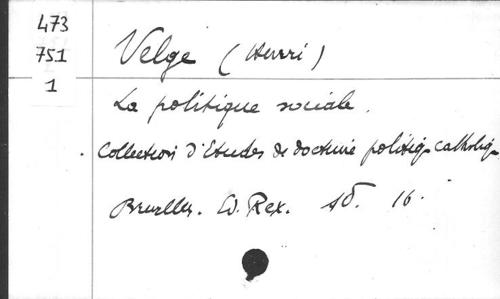 473
751
1
Velge (Henri)
La politique sociale.
Collection d'Etudes de doctrine politiq. catholiq.
Bruxelles. Ed. Rex. sd. 16.